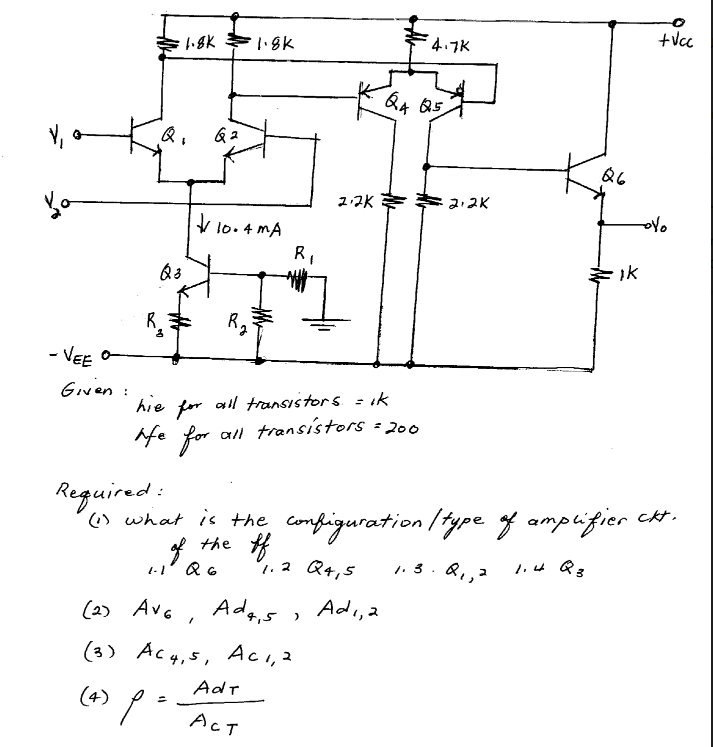 +Vcc
1.8K 1.8K 4.7K
Q4 Q5
V1 Q1 Q2
Q6
V2 2.2K 2.2K
Vo
↓ 10.4 mA
R1
Q3 1K
R3 R2
- VEE
Given :
hie for all transistors = 1K
hfe for all transistors = 200
Required :
(1) what is the configuration / type of amplifier ckt.
of the ff
1.1 Q6 1.2 Q4,5 1.3. Q1,2 1.4 Q3
(2) Av6 , Ad4,5 , Ad1,2
(3) Ac4,5, Ac1,2
(4) ρ = AdT
AcT